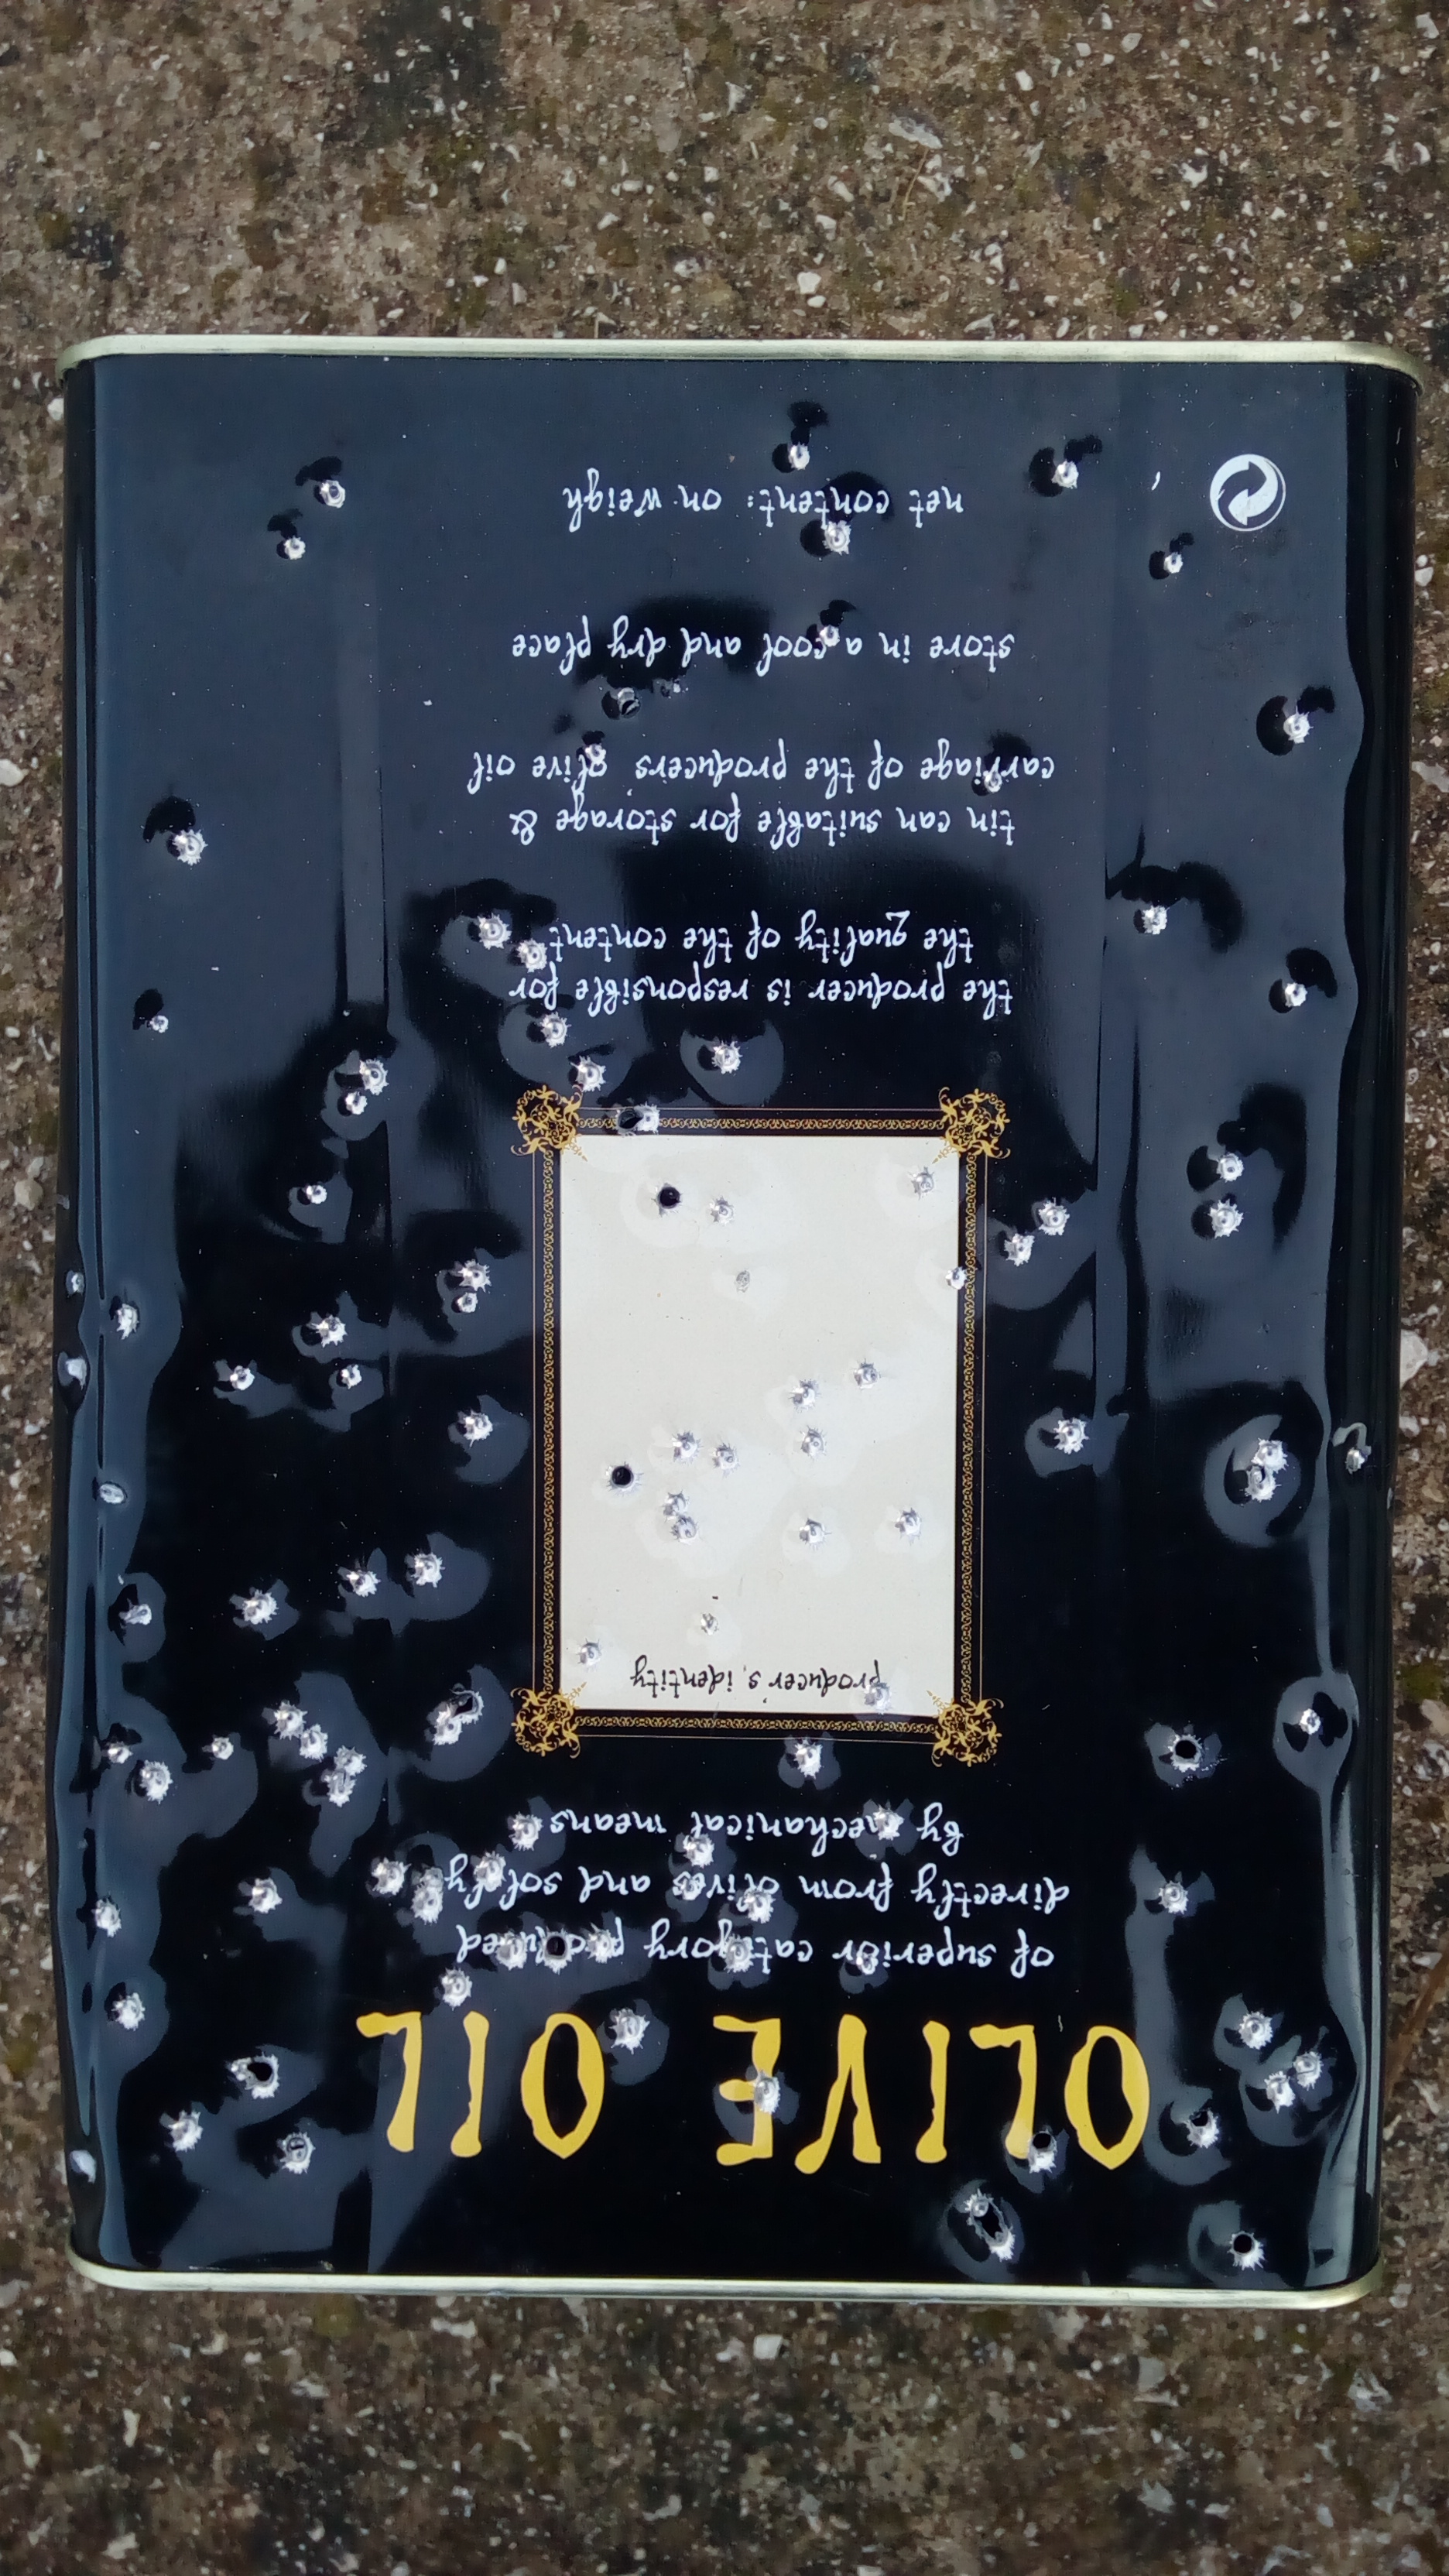 OLIVE OIL
of superior category produced
directly from olives and solely
by mechanical means
producer's identity
the producer is responsible for
the quality of the content
tin can suitable for storage &
carriage of the producers olive oil
store in a cool and dry place
net content: on weigh